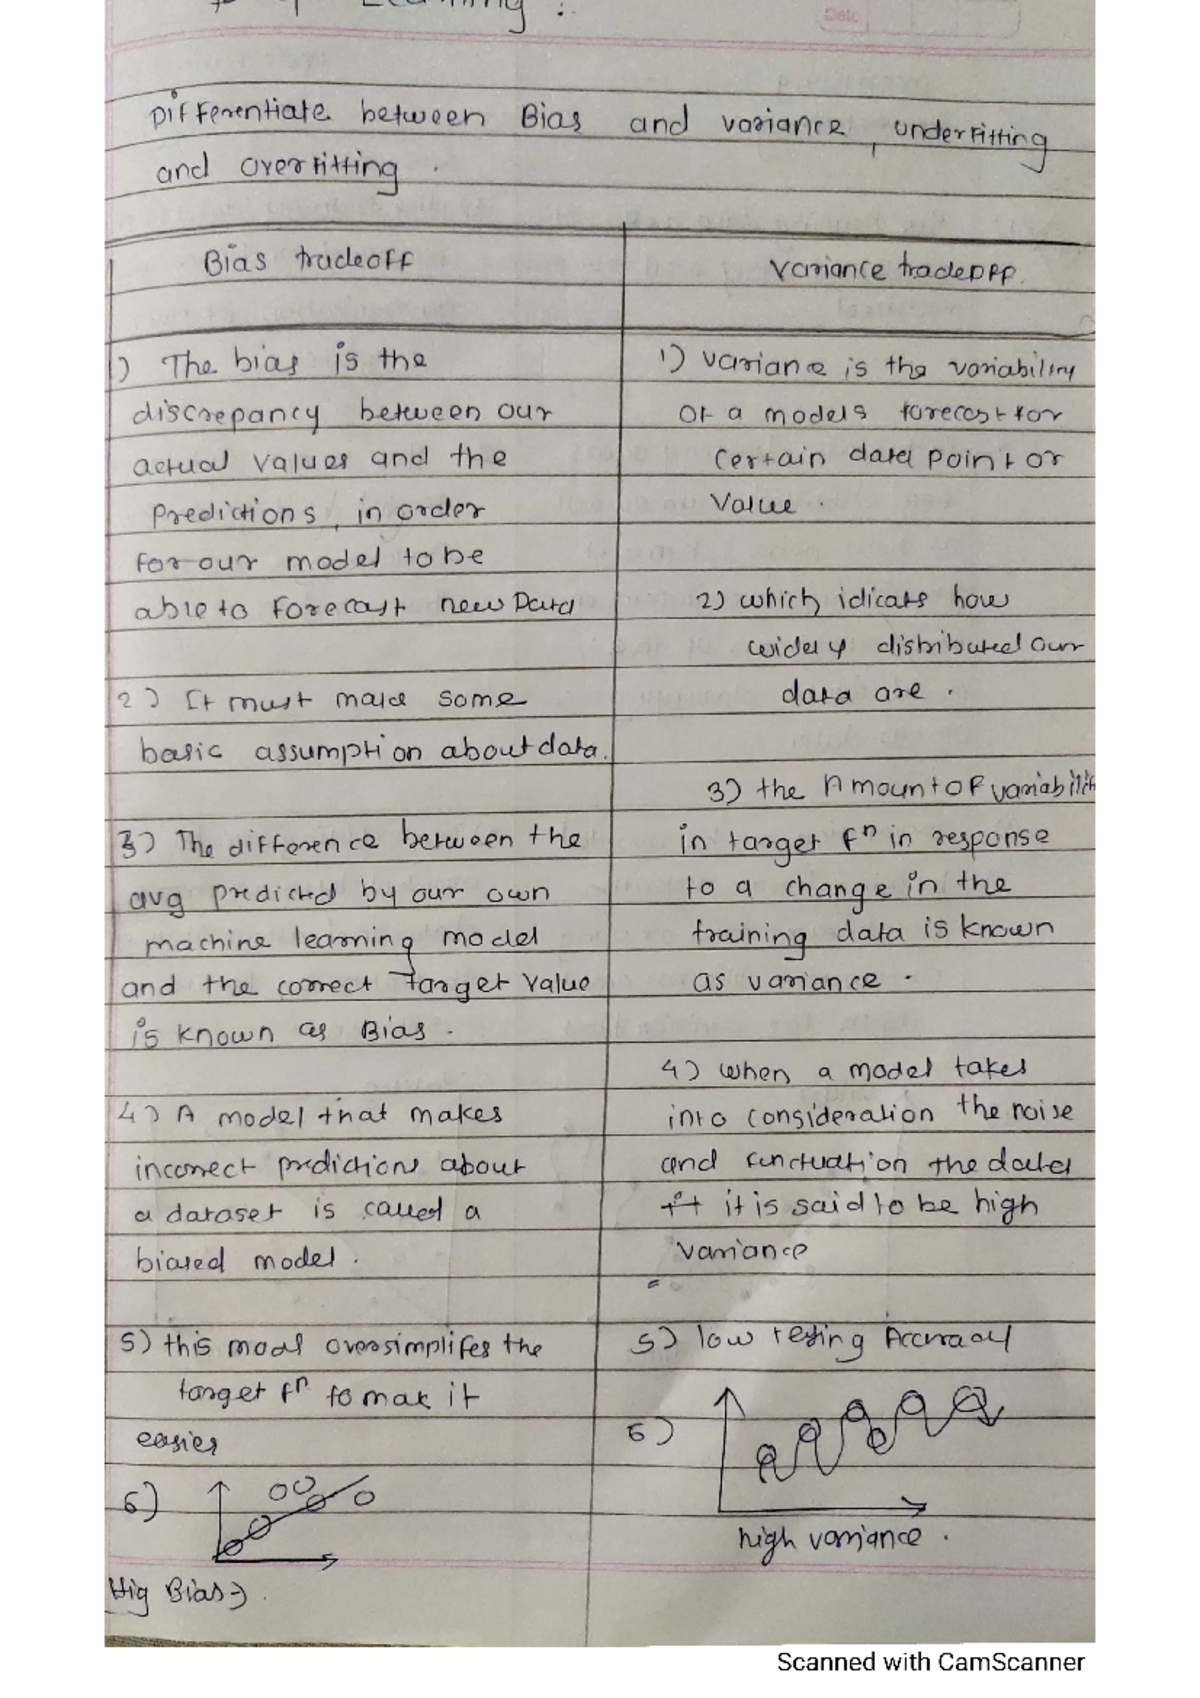 Learning :
Date
Differentiate between Bias and variance, underfitting
and overfitting.
Bias tradeoff
1) The bias is the
discrepancy between our
actual values and the
predictions, in order
for our model to be
able to forecast new Data
2) It must make some
basic assumption about data.
3) The difference between the
avg predicted by our own
machine learning model
and the correct target value
is known as Bias.
4) A model that makes
incorrect predictions about
a dataset is called a
biased model.
5) this model oversimplifes the
target fn to mak it
easier
6)
Hig Bias →
Variance tradeoff.
1) variance is the variability
of a models forecast for
certain data point or
value.
2) which idicats how
widely distributed our
data are.
3) the Amount of variabilit
in target fn in response
to a change in the
training data is known
as variance.
4) when a model takes
into consideration the noise
and functuation the data
it is said to be high
variance
5) low testing Accuracy
6)
high variance.
Scanned with CamScanner